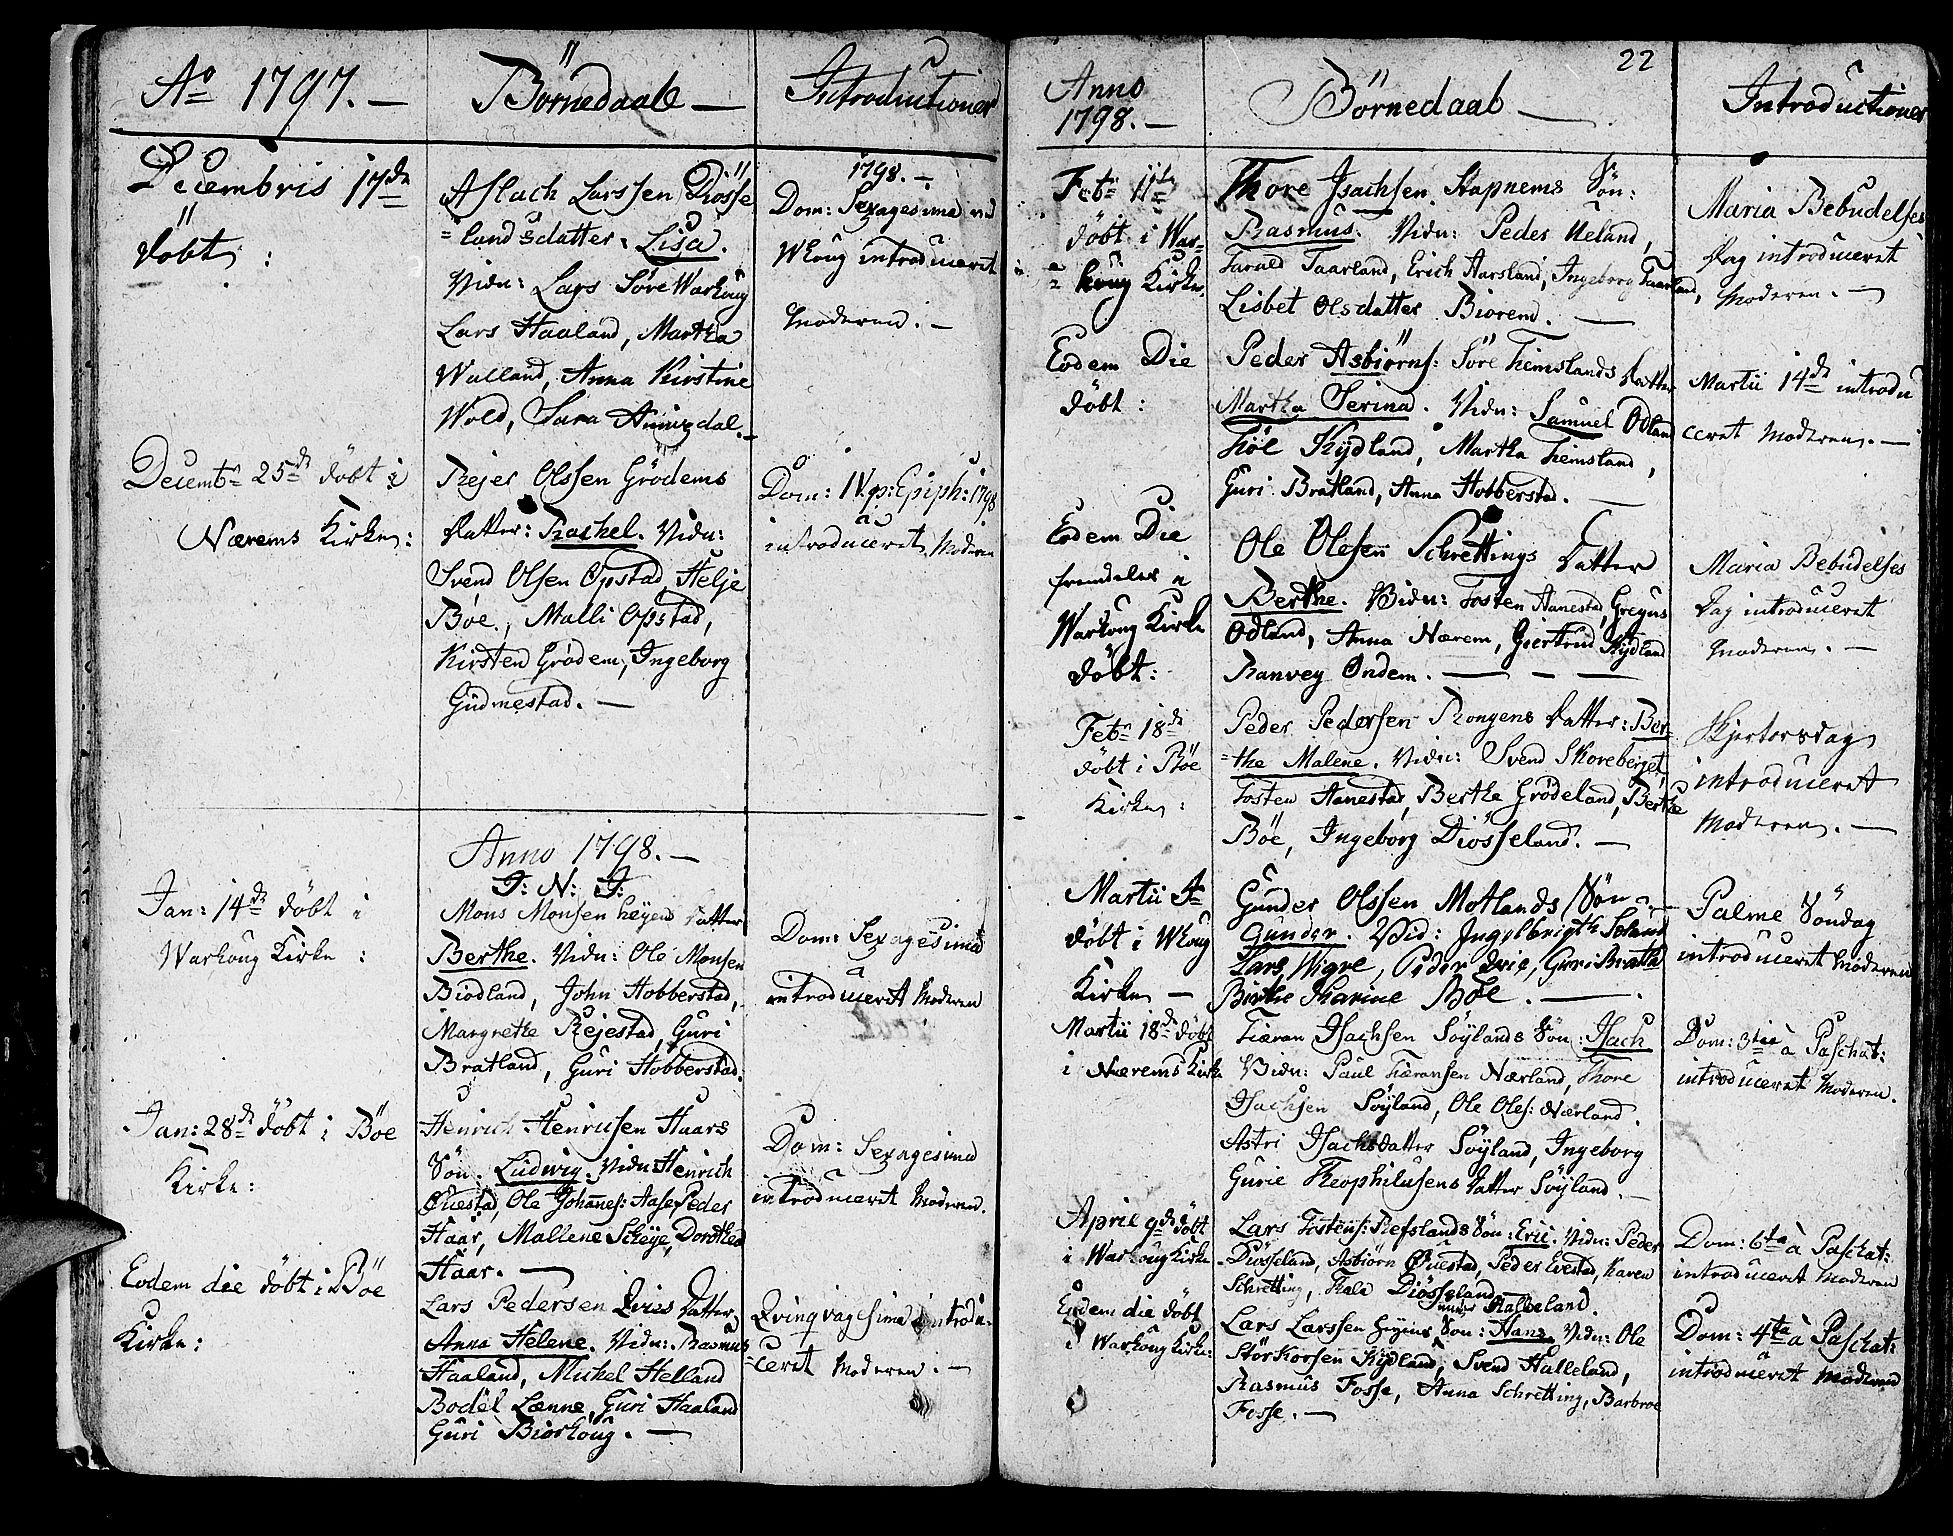 Ao 1797. —
Börnedaab —
Introductioner
Decembris 17de
döbt :
Aslach Larssen Diösse
= landsdatter: Lisa.
Vidn: Lars Söre Warhoug
Lars Haaland, Martha
Walland, Anna Kirstine
Wold, Sara Anisdal. —
1798. —
Dom: Sexagesima ved
WHoug introduceret
Moderen. —
Decembr 25de döbt i
Nærems Kirke :
Rejer Olssen Grödems
datter: Rachel. Vidn:
Svend Olsen Opstad, Helje
Böe, Malli Opstad,
Kirsten Grödem, Ingeborg
Gudmestad. —
Dom: IV. p: Epiph: 1798
introduceret Moderen
Anno 1798. —
I: N: J:
Jan: 14de döbt i
Warhoug Kirke :
Mons Monsen Höyens datter
Berthe. Vidn: Ole Monsen
Biodland, John Hobberstad,
Margrethe Rejestad, Guri
Bratland, Guri Hobberstad.
Dom: Sexagesima
introduceret Moderen
Jan: 28de döbt i Böe
Kirke:
Henrich Henricsen Haars
Sön. Ludwig. Vidn: Henrich
Qvestad, Ole Johannes: Aase, Peder
Haar, Mallene Scheye, Dorothea
Haar. —
Dom: Sexagesima
introduceret Moderen.
Eodem die döbt i Böe
Kirke:
Lars Pedersen Qvies datter
Anna Helene. Vidn: Rasmus
Haaland, Michel Helland
Bodel Lænne, Guri Haaland
Guri Biorhoug. —
Qvinqvagesima introdu-
= ceret Moderen. —
22
Anno
1798. —
Börnedaab —
Introductioner
Feb: 11te
döbt i War-
= houg Kirke.
Thore Isachsen Stapnems Sön:
Rasmus. Vidn: Peder Ueland,
Tarald Taarland, Erich Aarsland, Ingeborg Taarland,
Lisbet Olsdatter Biorem. —
Maria Bebudelses
Dag introduceret
Moderen. —
Eodem Die
döbt :
Peder Asbiörns: Söre Heimslands Datter
Martha Serina. Vidn: Samuel Odland
Höl Kydland, Martha Heimsland,
Guri Bratland, Anna Hobberstad. —
Martii 14de introdu
ceret Moderen. —
Eodem Die
fremdeles i
Warhoug Kirke
döbt:
Ole Olesen Schrettings Datter
Berthe. Vidn: Tosten Aanestad, Gregus
Odland, Anna Nærem, Giertrud Kydland
Ranvey Ondem. — — —
Maria Bebudelses
Dag introduceret
Moderen. —
Febr 18de
döbt i Böe
Kirke :
Peder Pedersen Rongens datter: Ber-
= the Malene. Vidn: Svend Skoreberget,
Tosten Aanestad, Berthe Grödeland, Berthe
Böe, Ingeborg Diösseland. —
Skjertorsdag
introduceret
Moderen. —
Martii 4de
döbt i WHoug
Kirke —
Gunder Olssen Motlands Sön —
Gunder. Vid: Ingelbrigth Söland
Lars Vigre, Peder Qvie, Guri Bratla
Birthe Karine Böe. —
Palme Söndag
introduceret Moderen
Martii 18de döbt
i Nærems Kirke
Tiæran Isachsen Söylands Sön: Isach
Vidn: Paul Tiæransen Nærland, Thore
Isachsen Söyland, Ole Oles: Nærland.
Astri Isachsdatter Söyland, Ingeborg
Gurie Theophilusens Datter Söyland. —
Dom: 3tia à Paschat:
introduceret Moderen.
April 9de döbt
i Warhoug Kirke
Lars Tostens: Refslands Sön: Eric. Vidn: Peder
Diösseland, Asbiörn Qvestad, Peder Evestad, Karen
Schretting, Thale Diösseland
Dom: 6ta à Paschat:
introduceret Moderen
Eodem die döbt
i Warhoug Kirke:
Lars Larssen Halleland Sön: Hans. Vidn: Ole
Störkorsen Kydland, Svend Halleland,
Rasmus Fosse, Anna Schretting, Barbroe
Fosse. —
Dom: 4ta à Paschat:
introduceret Moderen